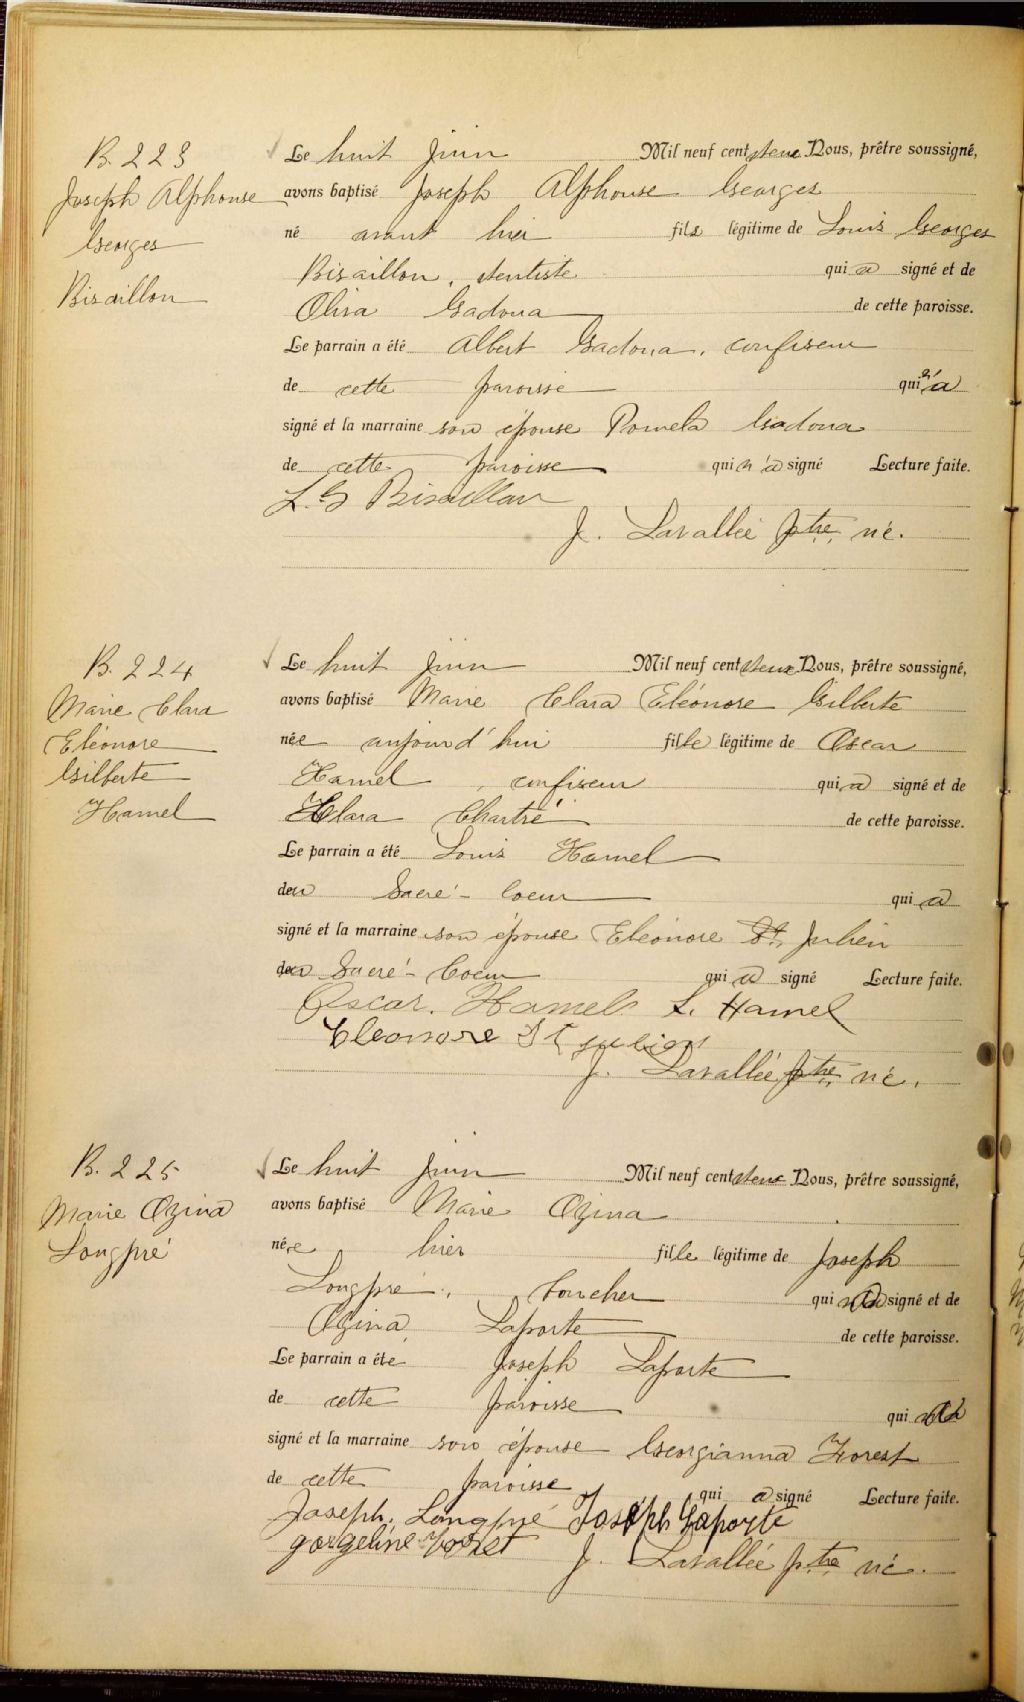 B. 223
Joseph Alphonse
Georges
Bisaillon
Le huit juin Mil neuf cent deux Nous, prêtre soussigné,
avons baptisé Joseph Alphonse Georges
né avant hier fils légitime de Louis Georges
Bisaillon, dentiste qui a signé et de
Oliva Gadoua de cette paroisse.
Le parrain a été Albert Gadoua, confiseur
de cette paroisse qui n'a
signé et la marraine son épouse Pomela Gadoua
de cette paroisse qui n'a signé Lecture faite.
L. G Bisaillon
J. Lavallée ptre vic.
B. 224
Marie Clara
Eléonore
Gilberte
Hamel
Le huit juin Mil neuf cent deux Nous, prêtre soussigné,
avons baptisé Marie Clara Eléonore Gilberte
née aujourd'hui fille légitime de Oscar
Hamel, confiseur qui a signé et de
Clara Chartré de cette paroisse.
Le parrain a été Louis Hamel
du Sacré-Coeur qui a
signé et la marraine son épouse Eléonore St Julien
du Sacré-Coeur qui a signé Lecture faite.
Oscar. Hamel L. Hamel
Eleonore St julien
J. Lavallée ptre vic.
B. 225
Marie Ozina
Longpré
Le huit juin Mil neuf cent deux Nous, prêtre soussigné,
avons baptisé Marie Ozina
née hier fille légitime de Joseph
Longpré, boucher qui a signé et de
Ozina Laporte de cette paroisse.
Le parrain a été Joseph Laporte
de cette paroisse qui a
signé et la marraine son épouse Georgianna Forest
de cette paroisse qui a signé Lecture faite.
Joseph. Longpré Joseph Laporte
gorgeline Foret
J. Lavallée ptre vic.